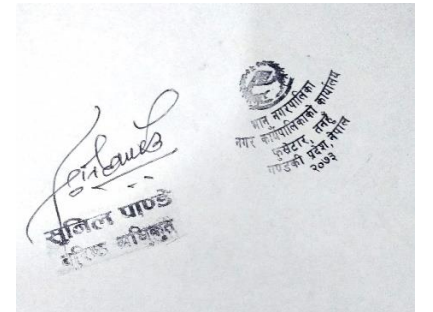 सुनिल पाण्डे
बरिष्ठ अधिकृत
भानु नगरपालिका
नगर कार्यपालिकाको कार्यालय
फुसेटार, तनहुँ
गण्डकी प्रदेश, नेपाल
२०७३